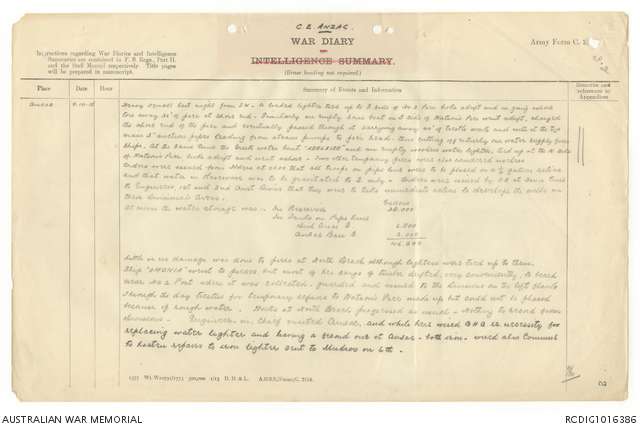 C. E. ANZAC.
WAR DIARY
INTELLIGENCE SUMMARY.
(Erase heading not required.)
Army Form C. 2
Instructions regarding War Diaries and Intelligence
Summaries are contained in F. S. Regs., Part II.
and the Staff Manual respectively. Title pages
will be prepared in manuscript.
Place
Date
Hour
Summary of Events and Information
Remarks and
references to
Appendices
ANZAC
9-10-15
Heavy squall last night from SW. A loaded lighter tied up to S side of No 2 Pier broke adrift and in going ashore
tore away 30' of pier at shore end. Similarly an empty horse boat on S side of Watson's Pier went adrift, charged
the shore end of the pier and eventually passed through it carrying away 40' of trestle work and with it the two
main 5" suction pipes leading from steam pumps to pier head, thus cutting off entirely our water supply from
ships. At the same time the trawl water boat "ADELAIDE" and an empty wooden water lighter, tied up at the N side
of Watson's Pier, broke adrift and went ashore. Two other temporary piers were also rendered useless
Orders were issued from Corps at 0800 that all troops on pipe line were to be placed on a ½ gallon ration
and that water in Reservoir was to be gravitated to 2 only. Orders were issued by CE at same time
to Engineers, 1st and 2nd Aust Divns that they were to take immediate action to develope the wells in
their Divisional areas.
At noon the water storage was:- In Reservoir
In Tanks on Pipe line
And Area
Anzac Base
Gallons
2,000
Little or no damage was done to piers at North Beach although lighters were tied up to them.
Ship "" went to pieces but most of her cargo of timber drifted, very conveniently, to beach
near No 2 Post where it was collected, guarded and issued to the divisions on the left flank
Through the day trestles for temporary repairs to Watson's Pier made up but could not be placed
because of rough water. Works at North Beach progressed as usual - Nothing to record from
divisions - Engineer in Chief visited Anzac, and while here wired GHQ re necessity for
replacing water lighter and having a second one at Anzac - both iron - wired also Communications
to hasten repairs to iron lighter sent to Mudros on 6th -
1577 Wt.W10791/1773 500,000 1/15 D. D. & L. A.D.S.S./Forms/C. 2118.
AUSTRALIAN WAR MEMORIAL
RCDIG1016386